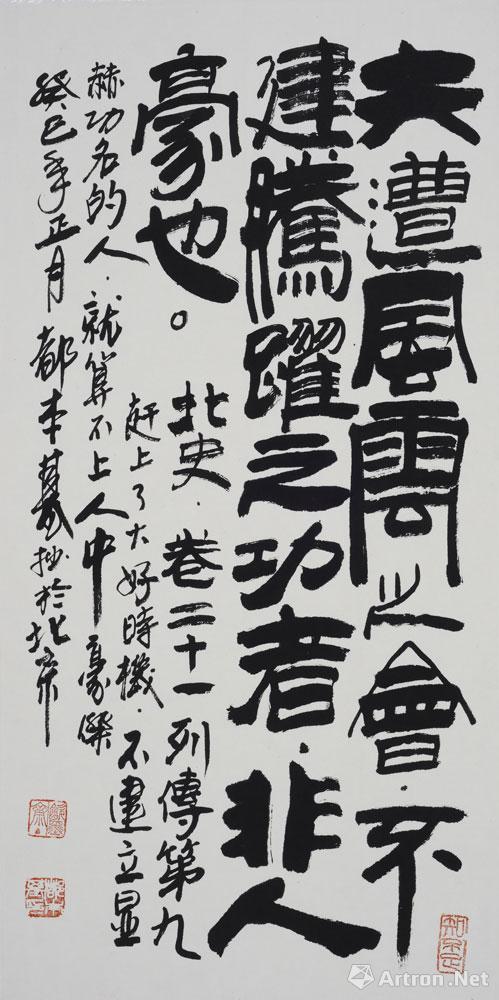 夫遭風雲之會·不
建騰躍之功者·非人
豪也。
北史·卷二十一列傳第九
赶上了大好時機·不建立显
赫功名的人·就算不上人中豪傑
癸巳年正月都本基抄於北京
知不足
Artron.Net